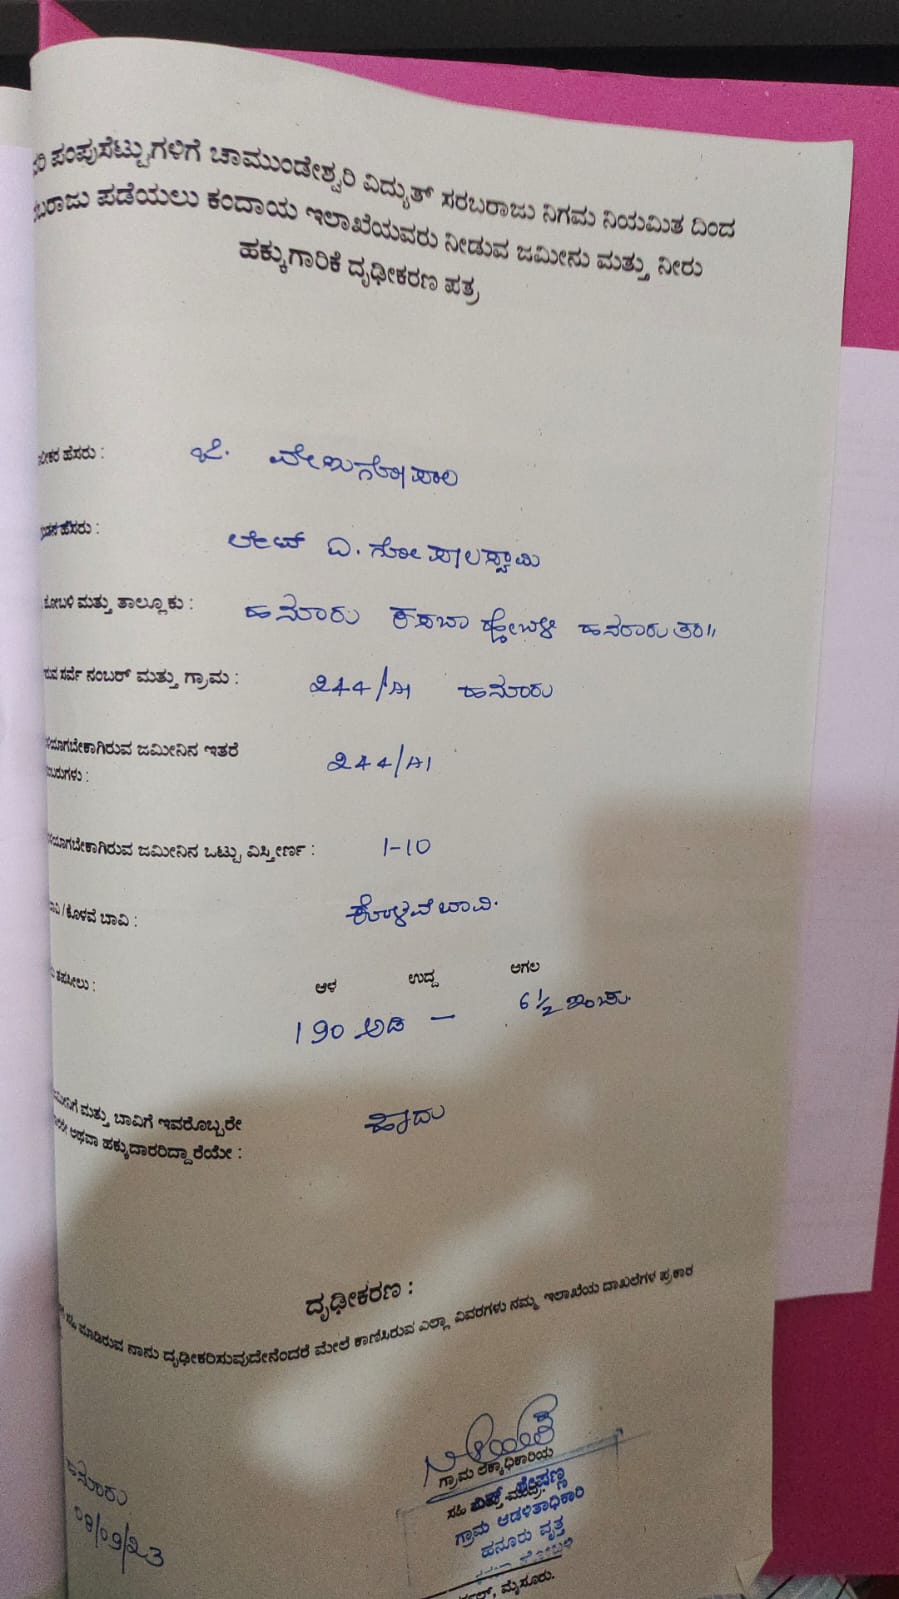 ಪಂಪುಸೆಟ್ಟುಗಳಿಗೆ ಚಾಮುಂಡೇಶ್ವರಿ ವಿದ್ಯುತ್ ಸರಬರಾಜು ನಿಗಮ ನಿಯಮಿತ ದಿಂದ
ಪಡೆಯಲು ಕಂದಾಯ ಇಲಾಖೆಯವರು ನೀಡುವ ಜಮೀನು ಮತ್ತು ನೀರು
ಹಕ್ಕುಗಾರಿಕೆ ದೃಢೀಕರಣ ಪತ್ರ
ಹೆಸರು : ಜಿ. ವೇಣುಗೋಪಾಲ
ಹೆಸರು : ಲೇಟ್ ವಿ. ಗೋಪಾಲಸ್ವಾಮಿ
ಹೋಬಳಿ ಮತ್ತು ತಾಲ್ಲೂಕು : ಹನೂರು ಕಸಬಾ ಹೋಬಳಿ ಹನೂರು ತಾ||
ಸರ್ವೆ ನಂಬರ್ ಮತ್ತು ಗ್ರಾಮ : 244/A1 ಹನೂರು
ಜಮೀನಿನ ಇತರೆ
244/A1
ಜಮೀನಿನ ಒಟ್ಟು ವಿಸ್ತೀರ್ಣ : 1-10
/ ಕೊಳವೆ ಬಾವಿ : ಕೊಳವೆ ಬಾವಿ.
ತಪಸೀಲು : ಆಳ ಉದ್ದ ಅಗಲ
190 ಅಡಿ — 6 1/2 ಇಂಚು.
ಮತ್ತು ಬಾವಿಗೆ ಇವರೊಬ್ಬರೇ
ಅಥವಾ ಹಕ್ಕುದಾರರಿದ್ದಾರೆಯೇ : ಹೌದು
ದೃಢೀಕರಣ :
ಸಹಿ ಮಾಡಿರುವ ನಾನು ದೃಢೀಕರಿಸುವುದೇನೆಂದರೆ ಮೇಲೆ ಕಾಣಿಸಿರುವ ಎಲ್ಲಾ ವಿವರಗಳು ನಮ್ಮ ಇಲಾಖೆಯ ದಾಖಲೆಗಳ ಪ್ರಕಾರ
ಗ್ರಾಮ ಲೆಕ್ಕಾಧಿಕಾರಿಯ
ಸಹಿ ಮತ್ತು ಮುದ್ರೆ
ಗ್ರಾಮ ಆಡಳಿತಾಧಿಕಾರಿ
ಹನೂರು ವೃತ್ತ
ಮೈಸೂರು.
ಹನೂರು
08/09/23